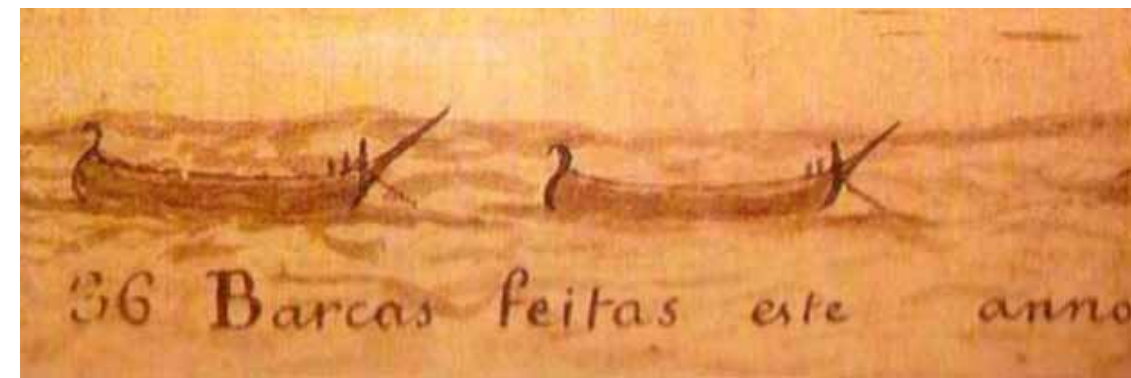 36 Barcas feitas este anno